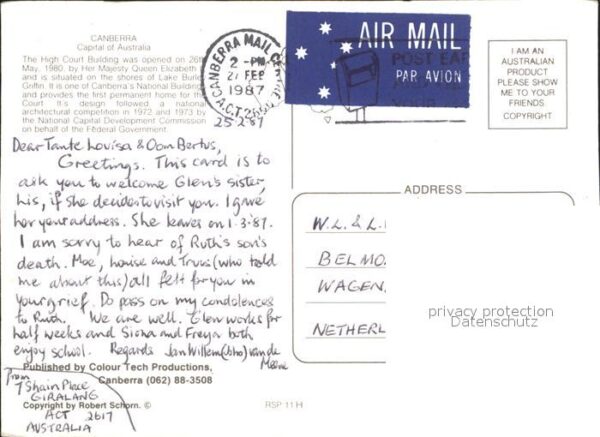 CANBERRA
Capital of Australia
The High Court Building was opened on 26th
May, 1980, by Her Majesty Queen Elizabeth
and is situated on the shores of Lake Burley
Griffin. It is one of Canberra's National Buildings
and provides the first permanent home for the
Court. It's design followed a national
architectural competition in 1972 and 1973 by
the National Capital Development Commission
on behalf of the Federal Government.
CANBERRA MAIL
2 - PM
27 FEB
1987
A.C.T. 2600
AIR MAIL
PAR AVION
POST EAR
YOUR
I AM AN
AUSTRALIAN
PRODUCT
PLEASE SHOW
ME TO YOUR
FRIENDS
COPYRIGHT
25.2.87
Dear Tante Lovisa & Oom Bertus,
Greetings. This card is to
ask you to welcome Glen's sister,
Lis, if she decides to visit you. I gave
her your address. She leaves on 1.3.87.
I am sorry to hear of Ruth's son's
death. Moe, Louise and Truus (who told
me about this) all felt for you in
your grief. Do pass on my condolences
to Ruth. We are well. Glen works for
half weeks and Siona and Freya both
enjoy school. Regards Jan Willem van de
ADDRESS
W.L. & L.
BELMO
WAGEN
NETHERL
privacy protection
Datenschutz
Published by Colour Tech Productions,
Canberra (062) 88-3508
From
7 Shain Place
GIRALANG
ACT 2617
AUSTRALIA
Copyright by Robert Schorn. ©
RSP 11 H